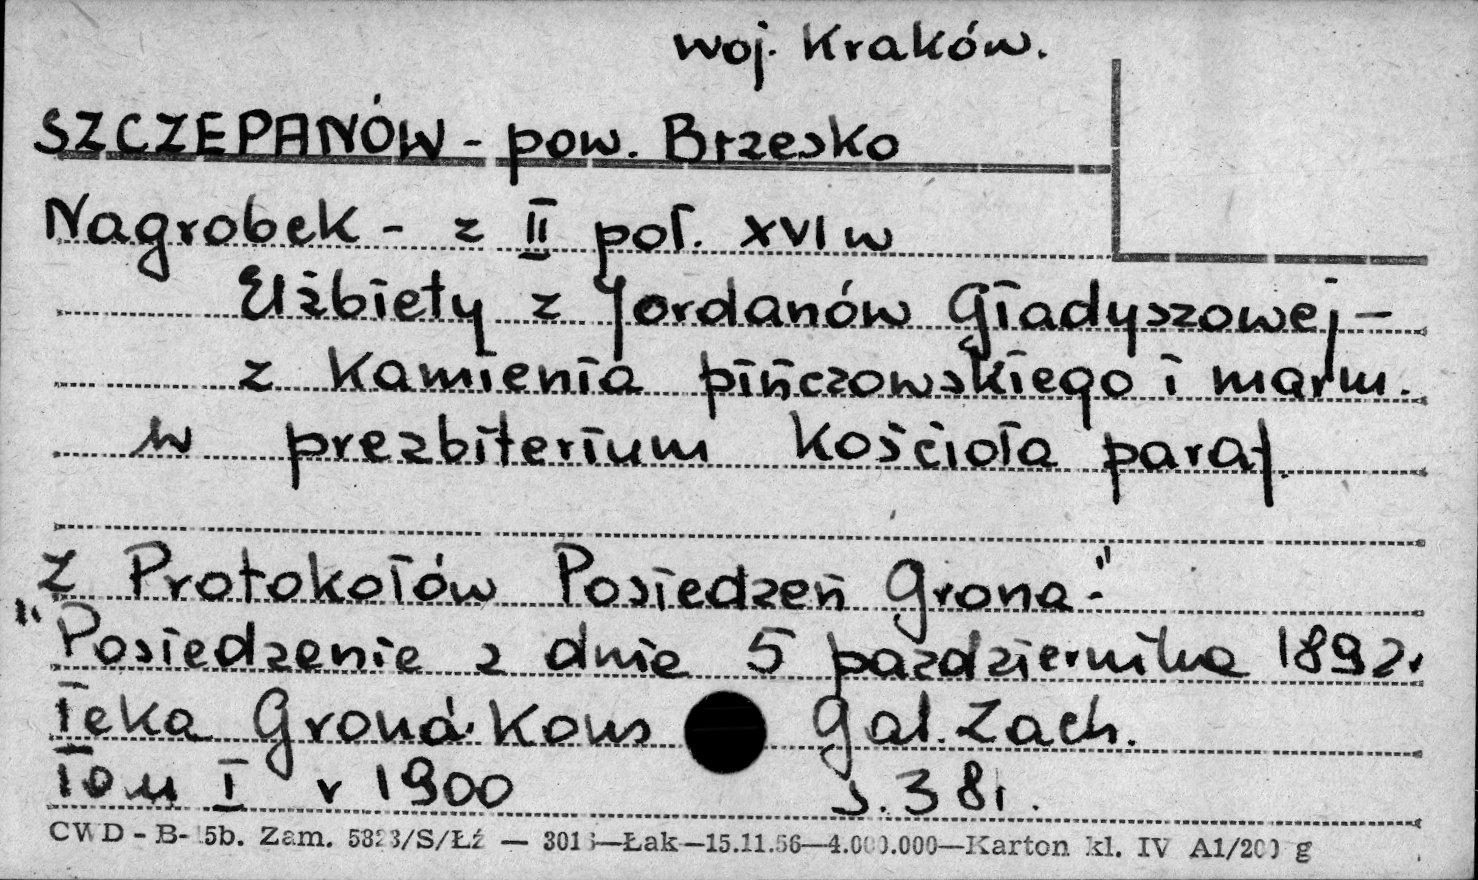 woj. Kraków.
SZCZEPANÓW - pow. Brzesko
Nagrobek - z II poł. XVI w
Elżbiety z Jordanów Gładyszowej -
z kamienia pińczowskiego i marm.
w prezbiterium kościoła paraf.
Z Protokołów Posiedzeń Grona - "
"Posiedzenie z dnia 5 października 1892r
Teka Grona Kons Gal. Zach.
Tom I r 1900 s. 381.
CWD - B- 5b. Zam. 5823/S/Łź — 3016—Łak—15.11.56—4.000.000—Karton kl. IV A1/200 g